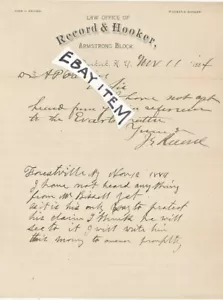 LAW OFFICE OF
Record & Hooker,
ARMSTRONG BLOCK.
N.Y. Nov 11 1884
Dr A P
Sir
I have not yet
heard from in reference
to the matter
Yours &
J. G. Record
EBAY ITEM
Forestville Ny Nov 12 1884
I have not heard anything
from Mr Bissell yet
as it is his only way to protect
his claim I think he will
see to it I will write him
this morng to answer promptly